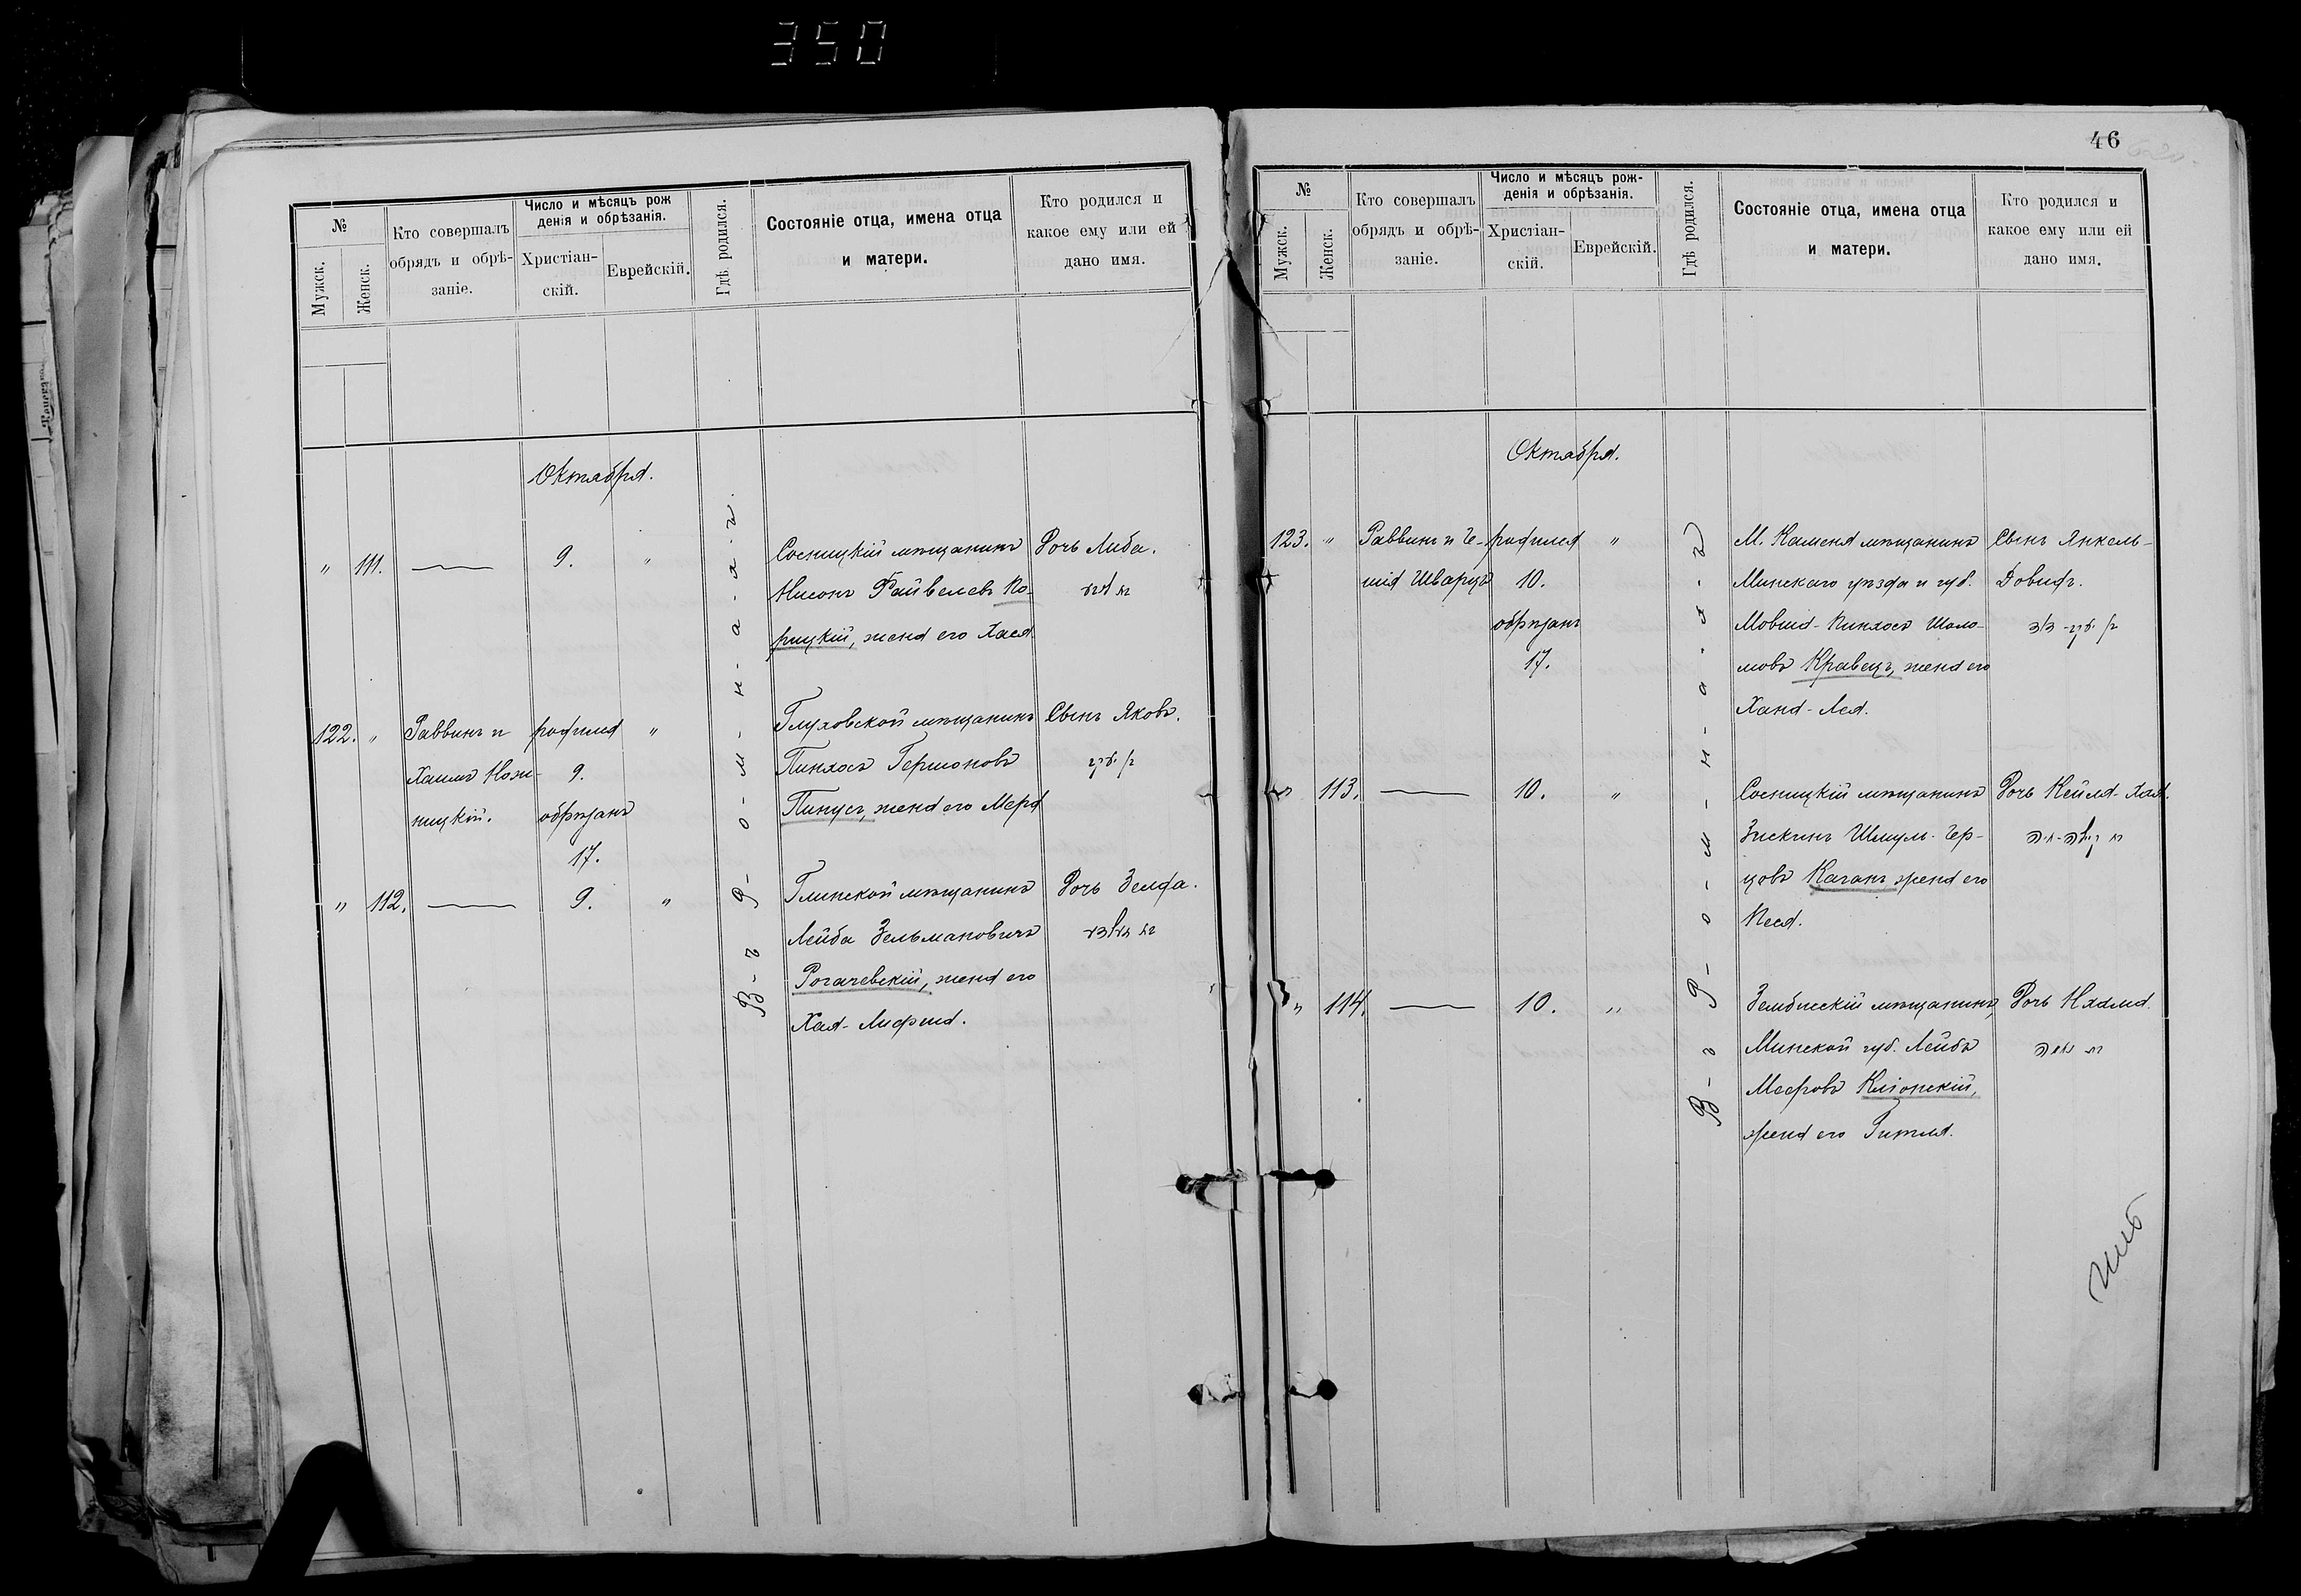 350
№
Мужск.
Женск.
Кто совершалъ
обрядъ и обрѣ-
заніе.
Число и мѣсяцъ рож
денія и обрѣзанія.
Христіан-
скій.
Еврейскій.
Гдѣ родился.
Состояніе отца, имена отца
и матери.
Кто родился и
какое ему или ей
дано имя.
Октября.
В-ъ Р-о-м-н-а-х-ъ.
" 111. 9. " Сосницкій мѣщанинъ Дочь Либа.
Нисонъ Файвелевъ Ко-
рицкій, жена его Хася.
122. " Раввинъ и родился " Глуховской мѣщанинъ Сынъ Яковъ.
Хаимъ Нож- 9. Пинхосъ Гершоновъ יעקב
ницкій. обрѣзанъ Пинусъ, жена его Мера
17.
" 112. 9. " Глинской мѣщанинъ Дочь Зелда.
Лейба Зельмановичъ
Рогачевскій, жена его
Хая-Лифша.
46
№
Мужск.
Женск.
Кто совершалъ
обрядъ и обрѣ-
заніе.
Число и мѣсяцъ рож-
денія и обрѣзанія.
Христіан-
скій.
Еврейскій.
Гдѣ родился.
Состояніе отца, имена отца
и матери.
Кто родился и
какое ему или ей
дано имя.
Октября.
В-ъ Р-о-м-н-а-х-ъ
123. " Раввинъ и Е- родился " М. Каменя мѣщанинъ Сынъ Янкель-
шія Шварцъ 10. Минскаго уѣзда и губ. Довидъ.
обрѣзанъ Мовша-Пинхосъ Шоло-
17. мовъ Кравецъ, жена его
Хана-Лея.
" 113. 10. " Сосницкій мѣщанинъ Дочь Кейла-Хая.
Зискинъ Шмул. Гер-
цовъ Каганъ жена его
Песя.
" 114. 10. " Зембинскій мѣщанинъ Дочь Нхама.
Минской губ. Лейба נחמה
Мееровъ Кліонскій,
жена его Гитля.